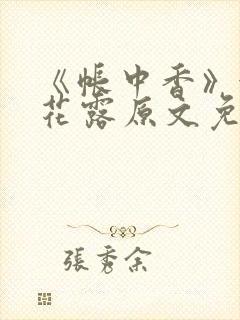 《帐中香》
花露原文免
張秀余